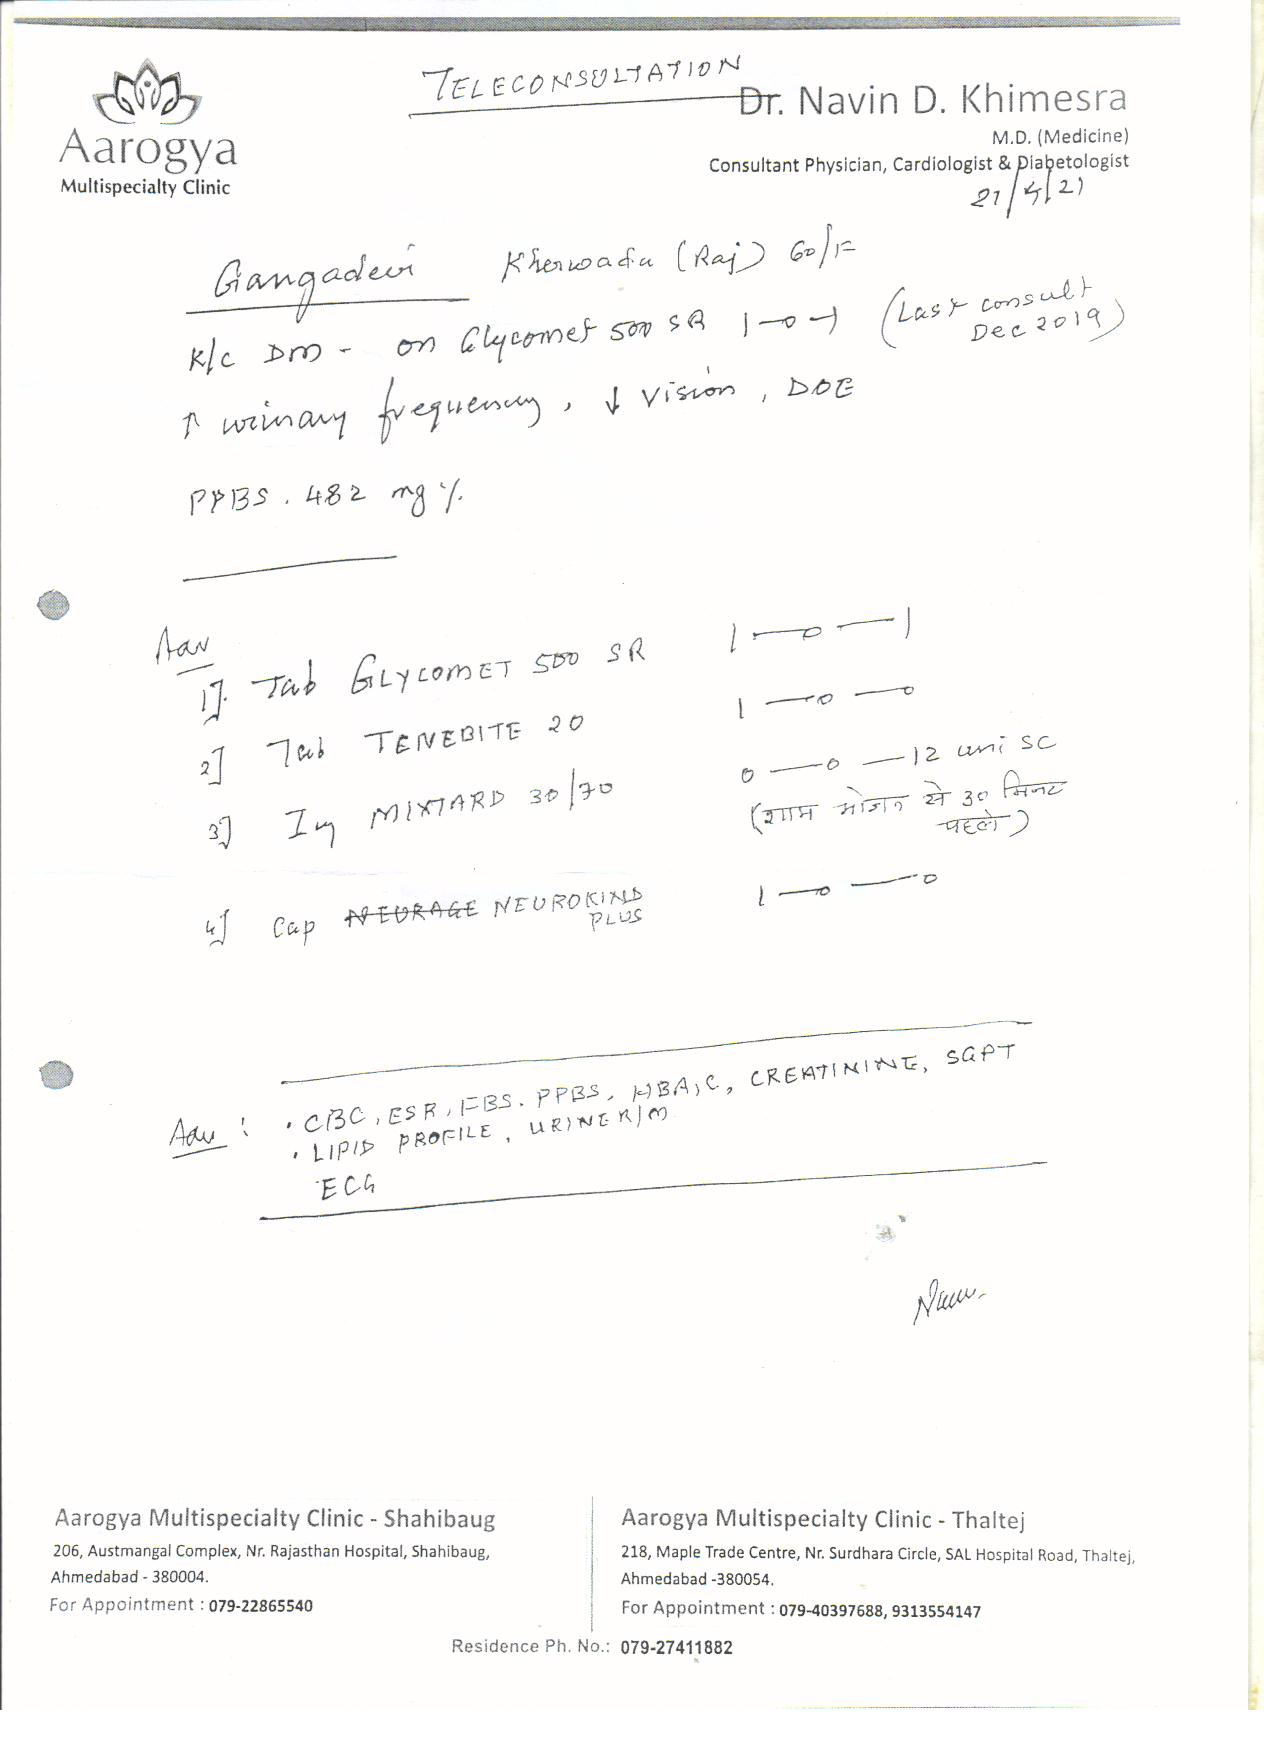 TELECONSULTATION
Aarogya
Multispecialty Clinic
Dr. Navin D. Khimesra
M.D. (Medicine)
Consultant Physician, Cardiologist & Diabetologist
21/5/21
Gangadevi Kherwada (Raj) 60/F
K/c DM - on Glycomet 500 SR 1-0-1 (Last consult Dec 2019)
↑ urinary frequency, ↓ vision, DOE
PPBS. 482 mg%
Adv
1]. Tab GLYCOMET 500 SR 1-0-1
2] Tab TENEBITE 20 1-0-0
3] Inj MIXTARD 30/70 0-0-12 uni SC
(शाम भोजन से 30 मिनट
पहले)
4] Cap NEURAGE NEUROKIND 1-0-0
PLUS
Adv : • CBC, ESR, FBS. PPBS, HBA1C, CREATININE, SGPT
• LIPID PROFILE, URINE R/M
ECG
Aarogya Multispecialty Clinic - Shahibaug
206, Austmangal Complex, Nr. Rajasthan Hospital, Shahibaug,
Ahmedabad - 380004.
For Appointment : 079-22865540
Aarogya Multispecialty Clinic - Thaltej
218, Maple Trade Centre, Nr. Surdhara Circle, SAL Hospital Road, Thaltej,
Ahmedabad -380054.
For Appointment : 079-40397688, 9313554147
Residence Ph. No.: 079-27411882